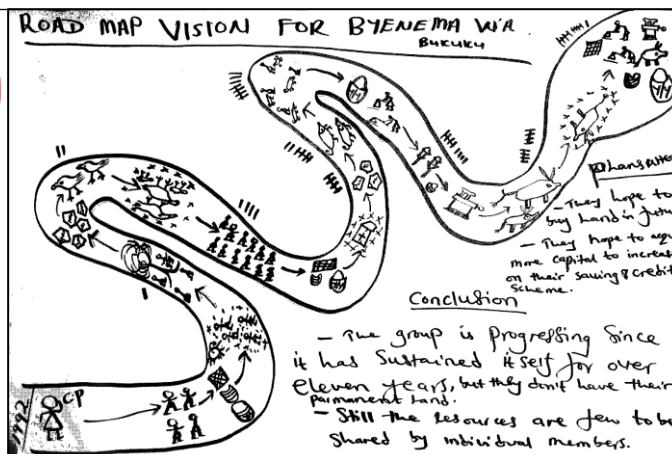 ROAD MAP VISION FOR BYENEMA W'A
BUKUKU
- They hope to
buy land in futu
- They hope to
more capital to increas
on their saving & Credit
Scheme.
Conclusion
- The group is progressing Since
it has Sustained itself for over
eleven years, but they don't have their
parmanent land.
- Still the resources are few to be
Shared by individual members.
CP
1992